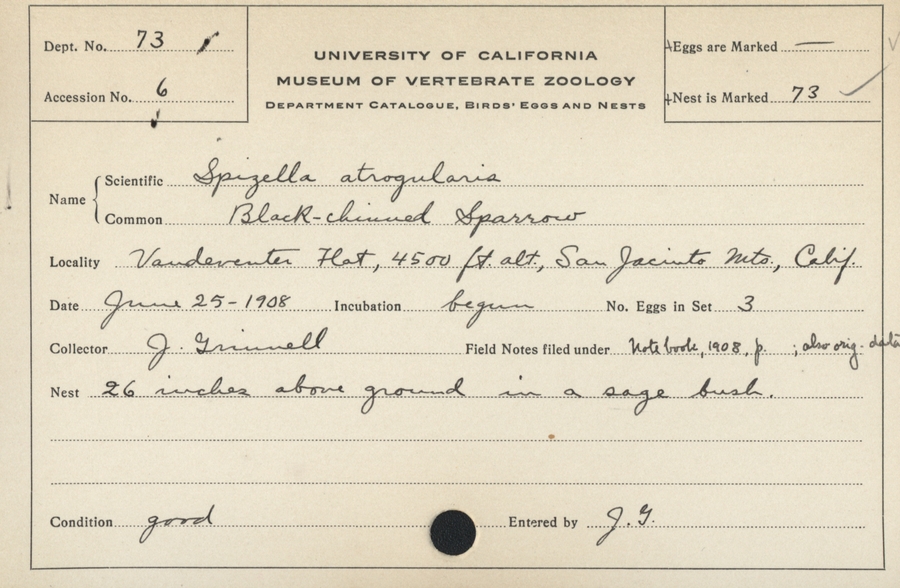 Dept. No. 73
UNIVERSITY OF CALIFORNIA
MUSEUM OF VERTEBRATE ZOOLOGY
DEPARTMENT CATALOGUE, BIRDS' EGGS AND NESTS
Eggs are Marked —
Accession No. 6
Nest is Marked 73
Name { Scientific Spizella atrogularis
Common Black-chinned Sparrow
Locality Vandeventer Flat, 4500 ft. alt., San Jacinto Mts., Calif.
Date June 25-1908 Incubation begun No. Eggs in Set 3
Collector J. Grinnell Field Notes filed under Note book, 1908, p. ; also orig. data
Nest 26 inches above ground in a sage bush.
Condition good Entered by J.G.